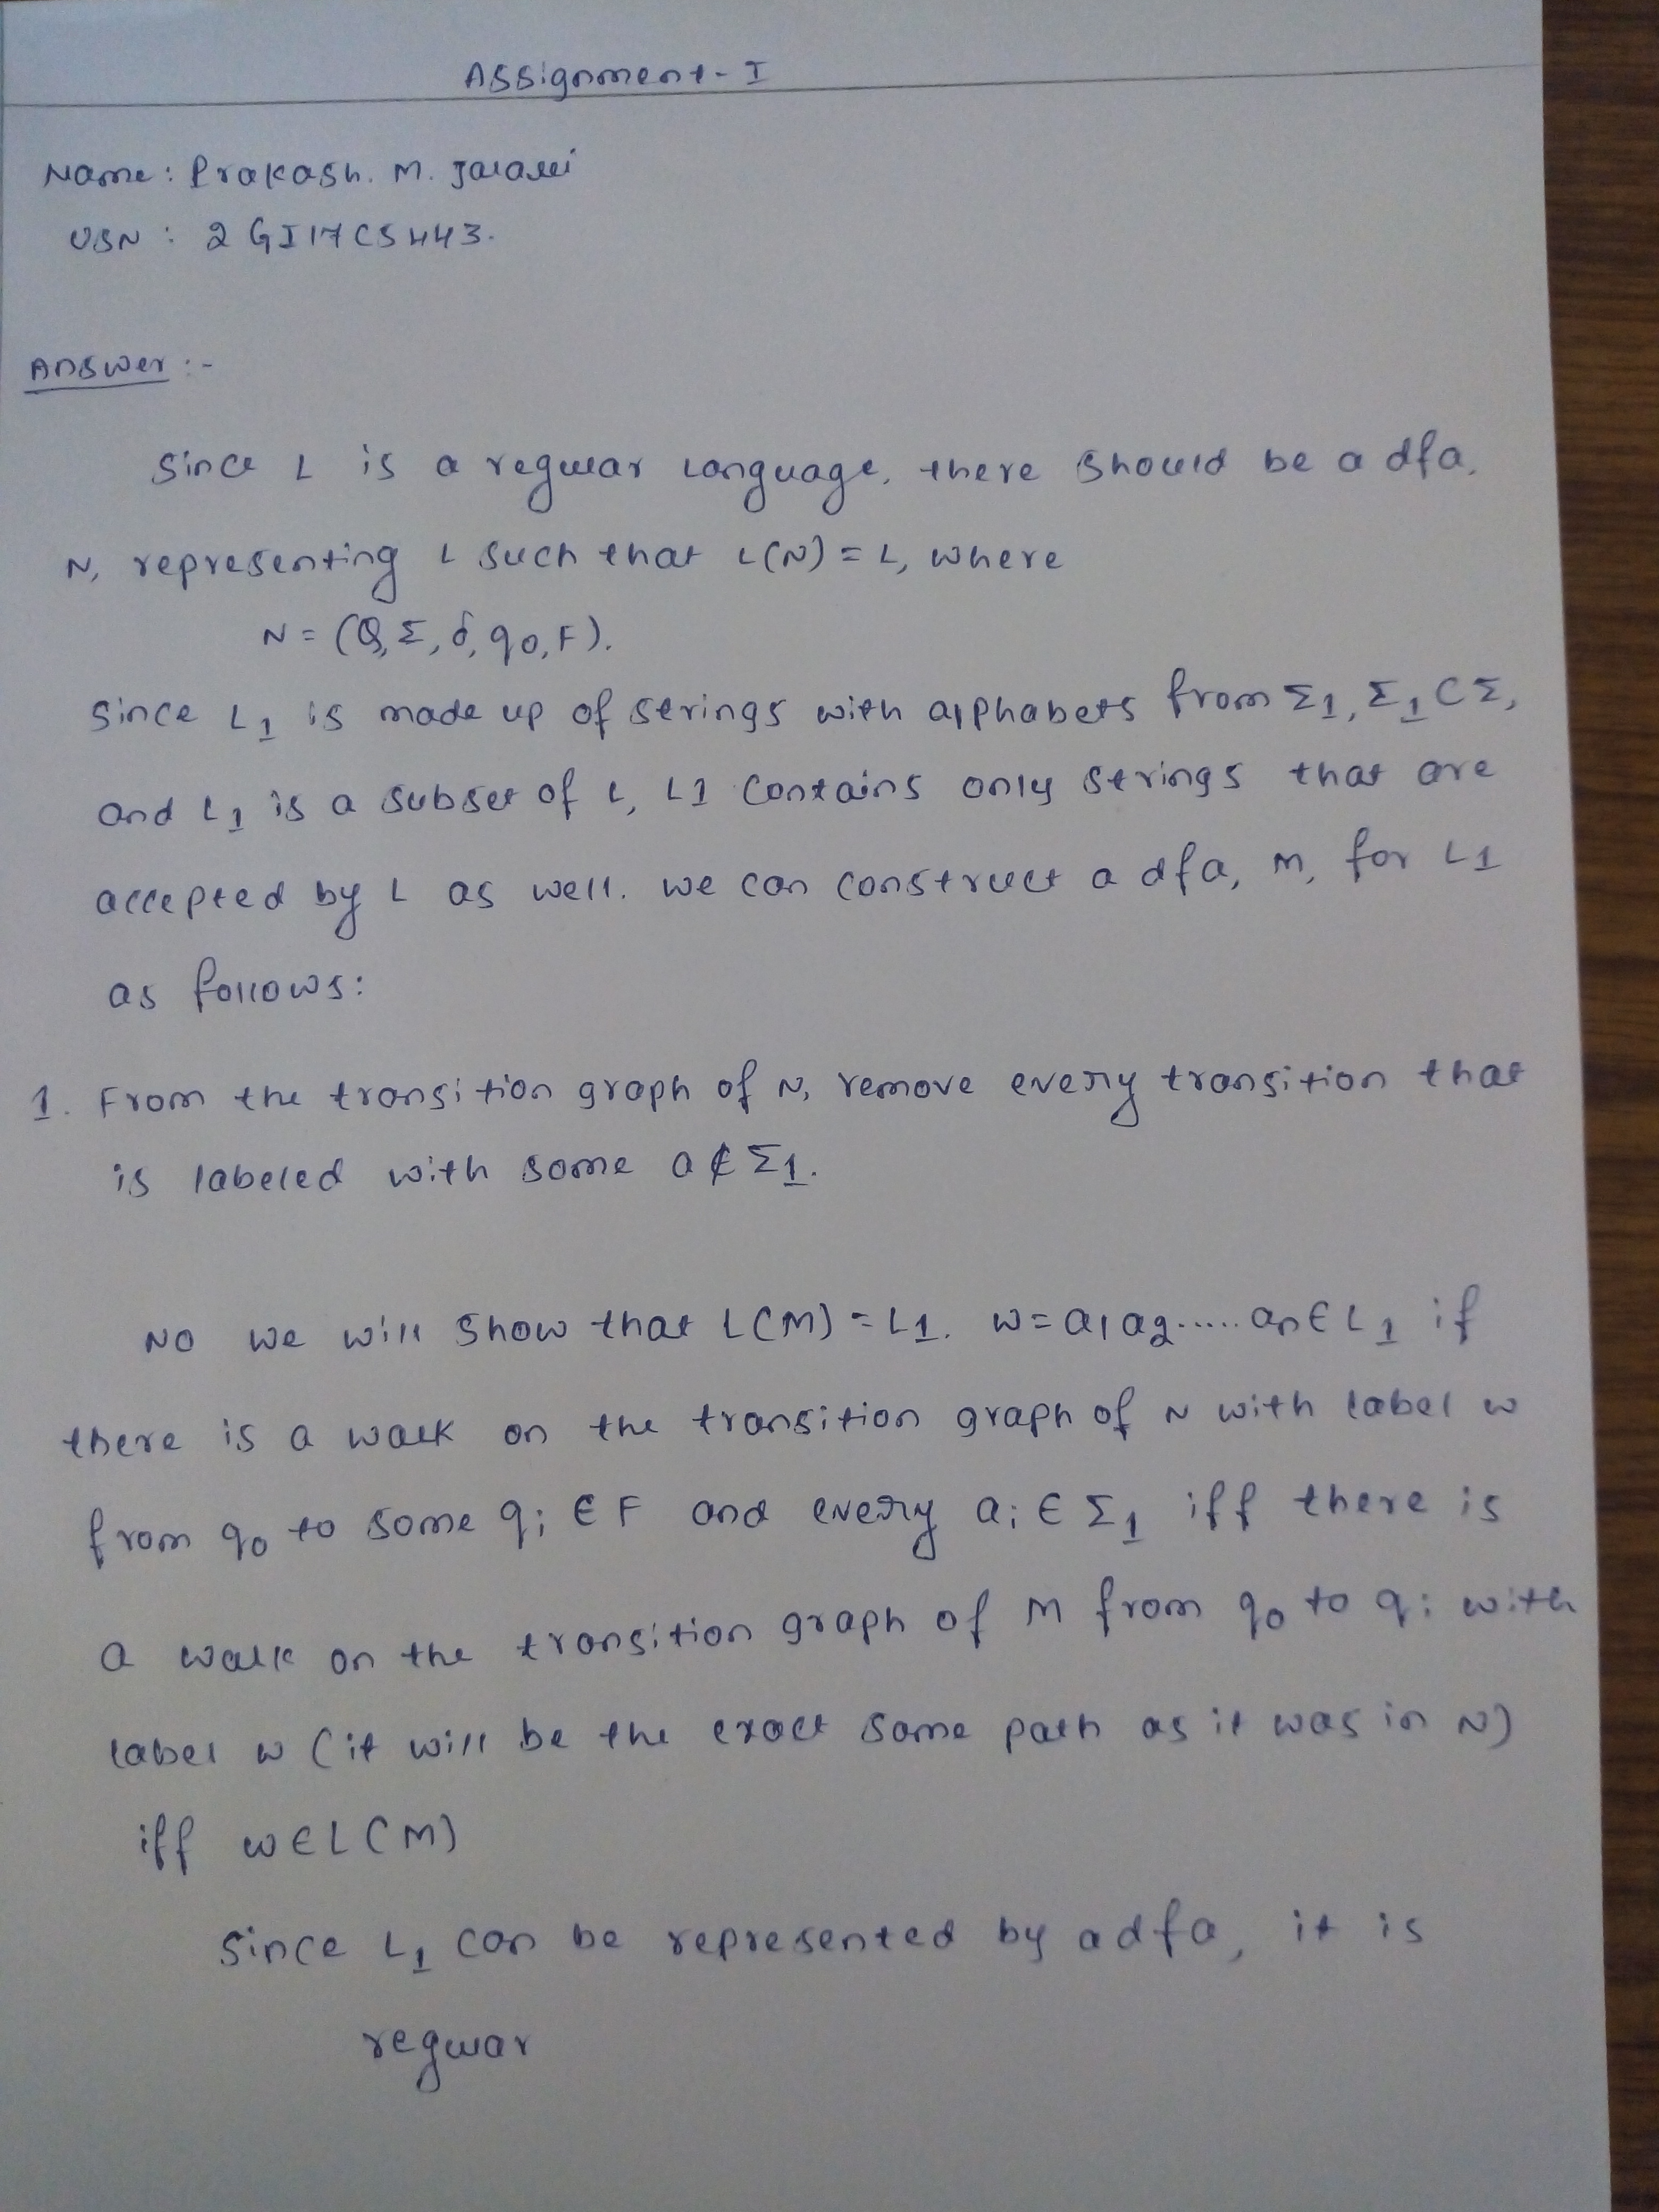 Assignment-I
Name: Prakash. M.
USN: 2GI17CS443.
Answer:-
Since L is a regular language, there should be a dfa,
N, representing L such that L(N) = L, where
N = (Q, Σ, δ, q0, F).
Since L1 is made up of strings with alphabets from Σ1, Σ1 ⊂ Σ,
and L1 is a subset of L, L1 contains only strings that are
accepted by L as well. we can construct a dfa, M, for L1
as follows:
1. From the transition graph of N, remove every transition that
is labeled with some a ∉ Σ1.
No we will show that L(M) = L1. w = a1a2..... an ∈ L1 if
there is a walk on the transition graph of N with label w
from q0 to some qi ∈ F and every ai ∈ Σ1 iff there is
a walk on the transition graph of M from q0 to qi with
label w (it will be the exact same path as it was in N)
iff w ∈ L(M)
Since L1 can be represented by a dfa, it is
regular